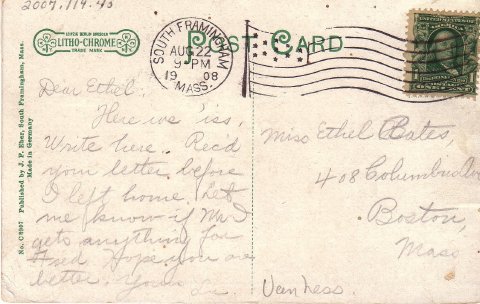 2007.119.45
LEIPZIG BERLIN DRESDEN
LITHO-CHROME
TRADE MARK
POST CARD
SOUTH FRAMINGHAM
AUG 22
9 PM
1908
MASS.
UNITED STATES OF AMERICA
ONE CENT
No. C 6907 Published by J. F. Eber, South Framingham, Mass.
Made in Germany
Dear Ethel:
Here we 'iss.
Write here. Rec'd
your letter before
I left home. Let
me know if Mr.
gets anything for
Fred. Hope you are
better. Yours
Van Ness.
Miss Ethel Bates
408 Columbus Av
Boston,
Mass